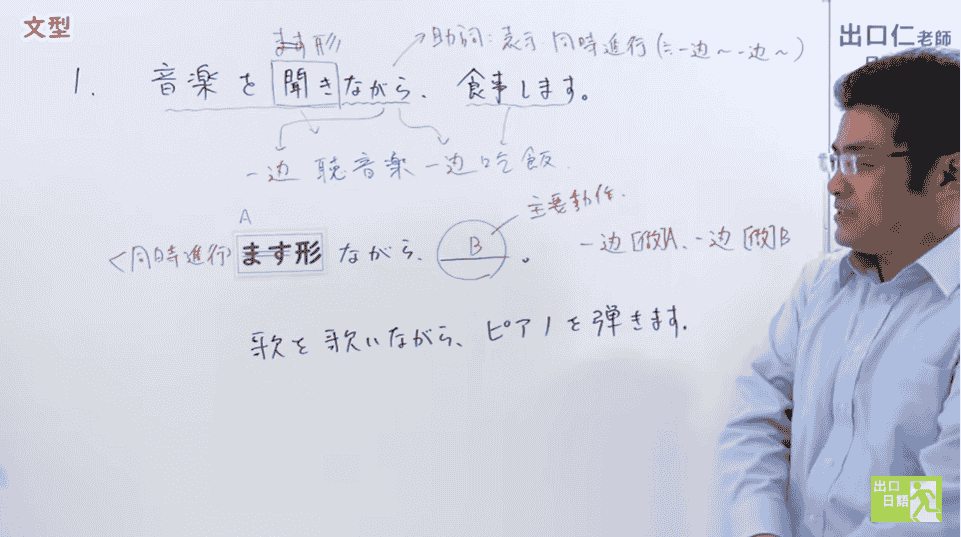 文型
出口仁老師
ます形
助詞:表示 同時進行(≒一边~一边~)
1. 音楽を聞きながら、食事します。
一边 聴音楽 一边吃飯.
A
主要動作.
<同時進行> ます形 ながら、 B 。
一边[做]A、一边[做]B
歌を歌いながら、ピアノを弾きます.
出口
日語